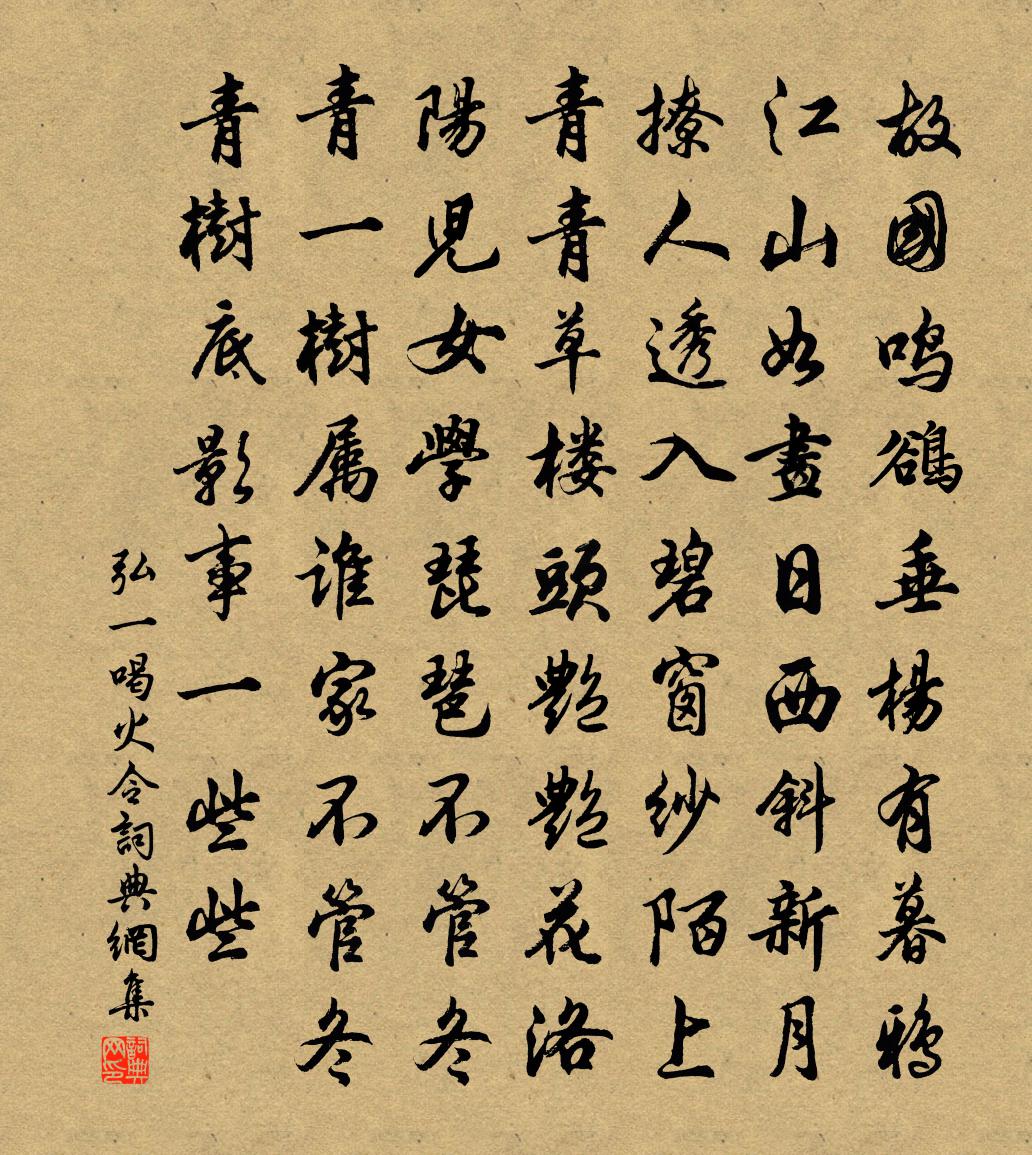 故國鳴鵒垂楊有暮鴉
江山如畫日西斜新月
撩人透入碧窗紗陌上
青青草楼頭艷艷花洛
陽兒女學琵琶不管冬
青一樹属誰家不管冬
青樹底影事一些些
弘一喝火令詞典網集
詞典网印